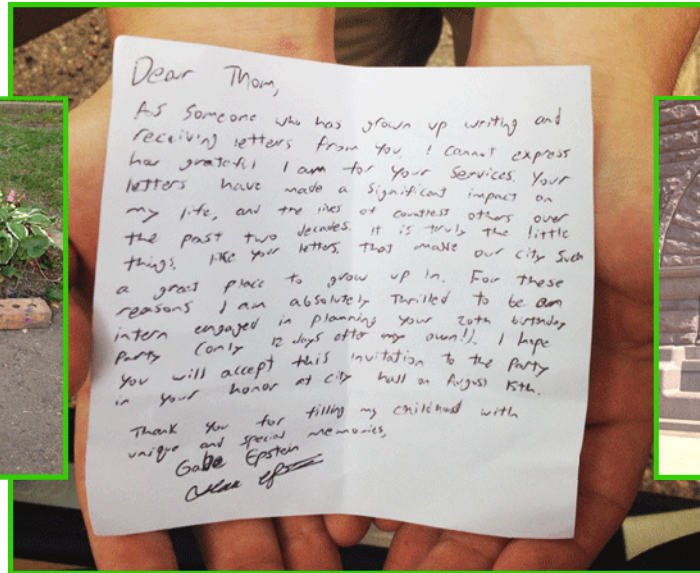 Dear Thom,
As someone who has grown up writing and
receiving letters from you, I cannot express
how grateful I am for your services. Your
letters have made a significant impact on
my life, and the lives of countless others over
the past two decades. It is truly the little
things, like your letters, that make our city such
a great place to grow up in. For these
reasons I am absolutely thrilled to be an
intern engaged in planning your 20th birthday
party (only 12 days after my own!). I hope
you will accept this invitation to the party
in your honor at city hall on August 15th.
Thank you for filling my childhood with
unique and special memories,
Gabe Epstein